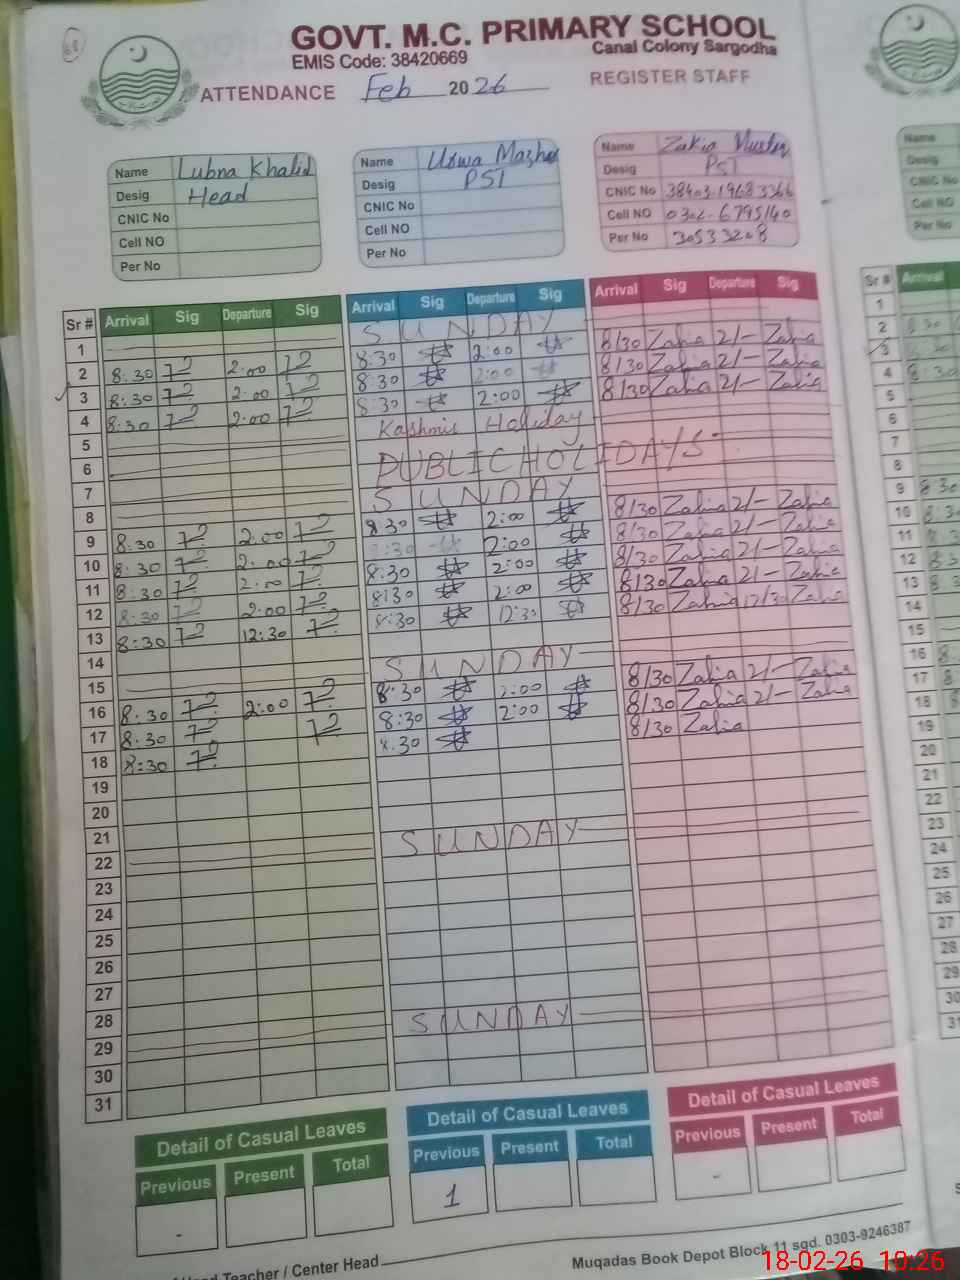 GOVT. M.C. PRIMARY SCHOOL
Canal Colony Sargodha
EMIS Code: 38420669
ATTENDANCE Feb 2026 REGISTER STAFF
Name Lubna Khalid
Desig Head
CNIC No
Cell NO
Per No
Name Urwa Mazher
Desig PST
CNIC No
Cell NO
Per No
Name Zakia
Desig PST
CNIC No
Cell NO 0302-6795140
Per No 30533208
Sr # Arrival Sig Departure Sig Arrival Sig Departure Sig Arrival Sig Departure Sig
1 SUNDAY
2 8:30 2:00 8:30 2:00 8/30 Zakia 2/- Zakia
3 8:30 2:00 8:30 2:00 8/30 Zakia 2/- Zakia
4 8:30 2:00 8:30 2:00 8/30 Zakia 2/- Zakia
5 Kashmir Holiday
6 PUBLIC HOLIDAYS
7
8 SUNDAY
9 8:30 2:00 8:30 2:00 8/30 Zakia 2/- Zakia
10 8:30 2:00 8:30 2:00 8/30 Zakia 2/- Zakia
11 8:30 2:00 8:30 2:00 8/30 Zakia 2/- Zakia
12 8:30 2:00 8:30 2:00 8/30 Zakia 2/- Zakia
13 8:30 12:30 8:30 12:30 8/30 Zakia 12/30 Zakia
14
15 SUNDAY
16 8:30 2:00 8:30 2:00 8/30 Zakia 2/- Zakia
17 8:30 8:30 2:00 8/30 Zakia 2/- Zakia
18 8:30 8:30 8/30 Zakia
19
20
21
22 SUNDAY
23
24
25
26
27
28
29 SUNDAY
30
31
Detail of Casual Leaves
Previous Present Total
-
Detail of Casual Leaves
Previous Present Total
1
Detail of Casual Leaves
Previous Present Total
-
Head Teacher / Center Head
Muqadas Book Depot Block 11 sgd. 0303-9246387
18-02-26 10:26